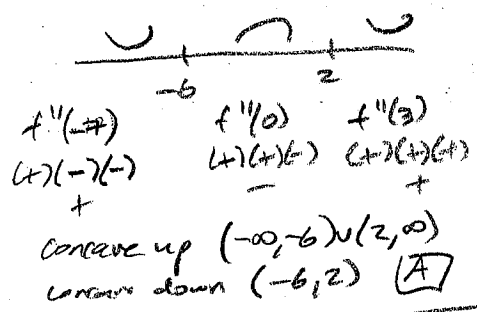 -6 2
f"(-7) f"(0) f"(3)
(+)(-)(-) (+)(+)(-) (+)(+)(+)
+ - +
concave up (-∞,-6)∪(2,∞)
concave down (-6,2) A